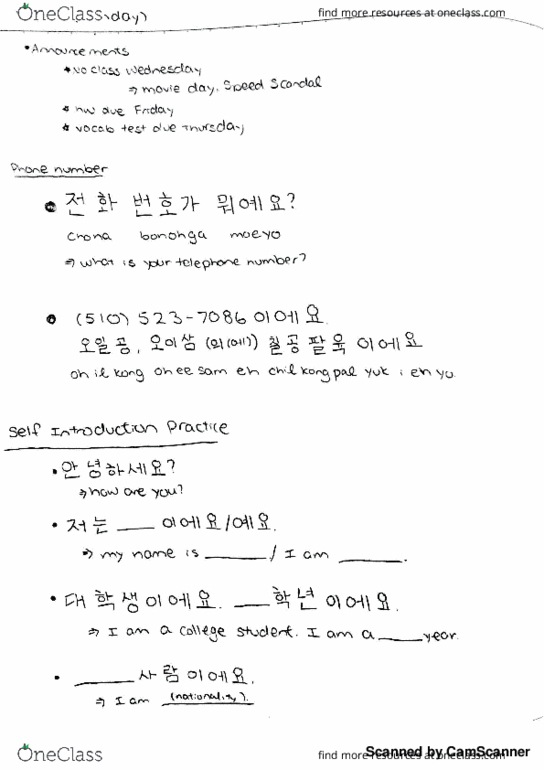 OneClass day)
find more resources at oneclass.com
• Announcements
* No class Wednesday
⇒ movie day, Speed Scandal
* hw due Friday
* vocab test due Thursday
Phone number
• 전화 번호가 뭐에요?
chona bonohga moeyo
⇒ what is your telephone number?
• (510) 523-7086 이에요.
오일공, 오이삼 (의(에)) 칠공팔육 이에요
oh il kong oh ee sam eh chil kong pal yuk i eh yo.
Self Introduction Practice
• 안녕하세요?
⇒ how are you?
• 저는 ____ 이에요/예요.
⇒ my name is ______ / I am ______.
• 대학생이에요. ___학년이에요.
⇒ I am a college student. I am a ____ year.
• ______ 사람이에요.
⇒ I am (nationality).
OneClass
find more resources at oneclass.com
Scanned by CamScanner